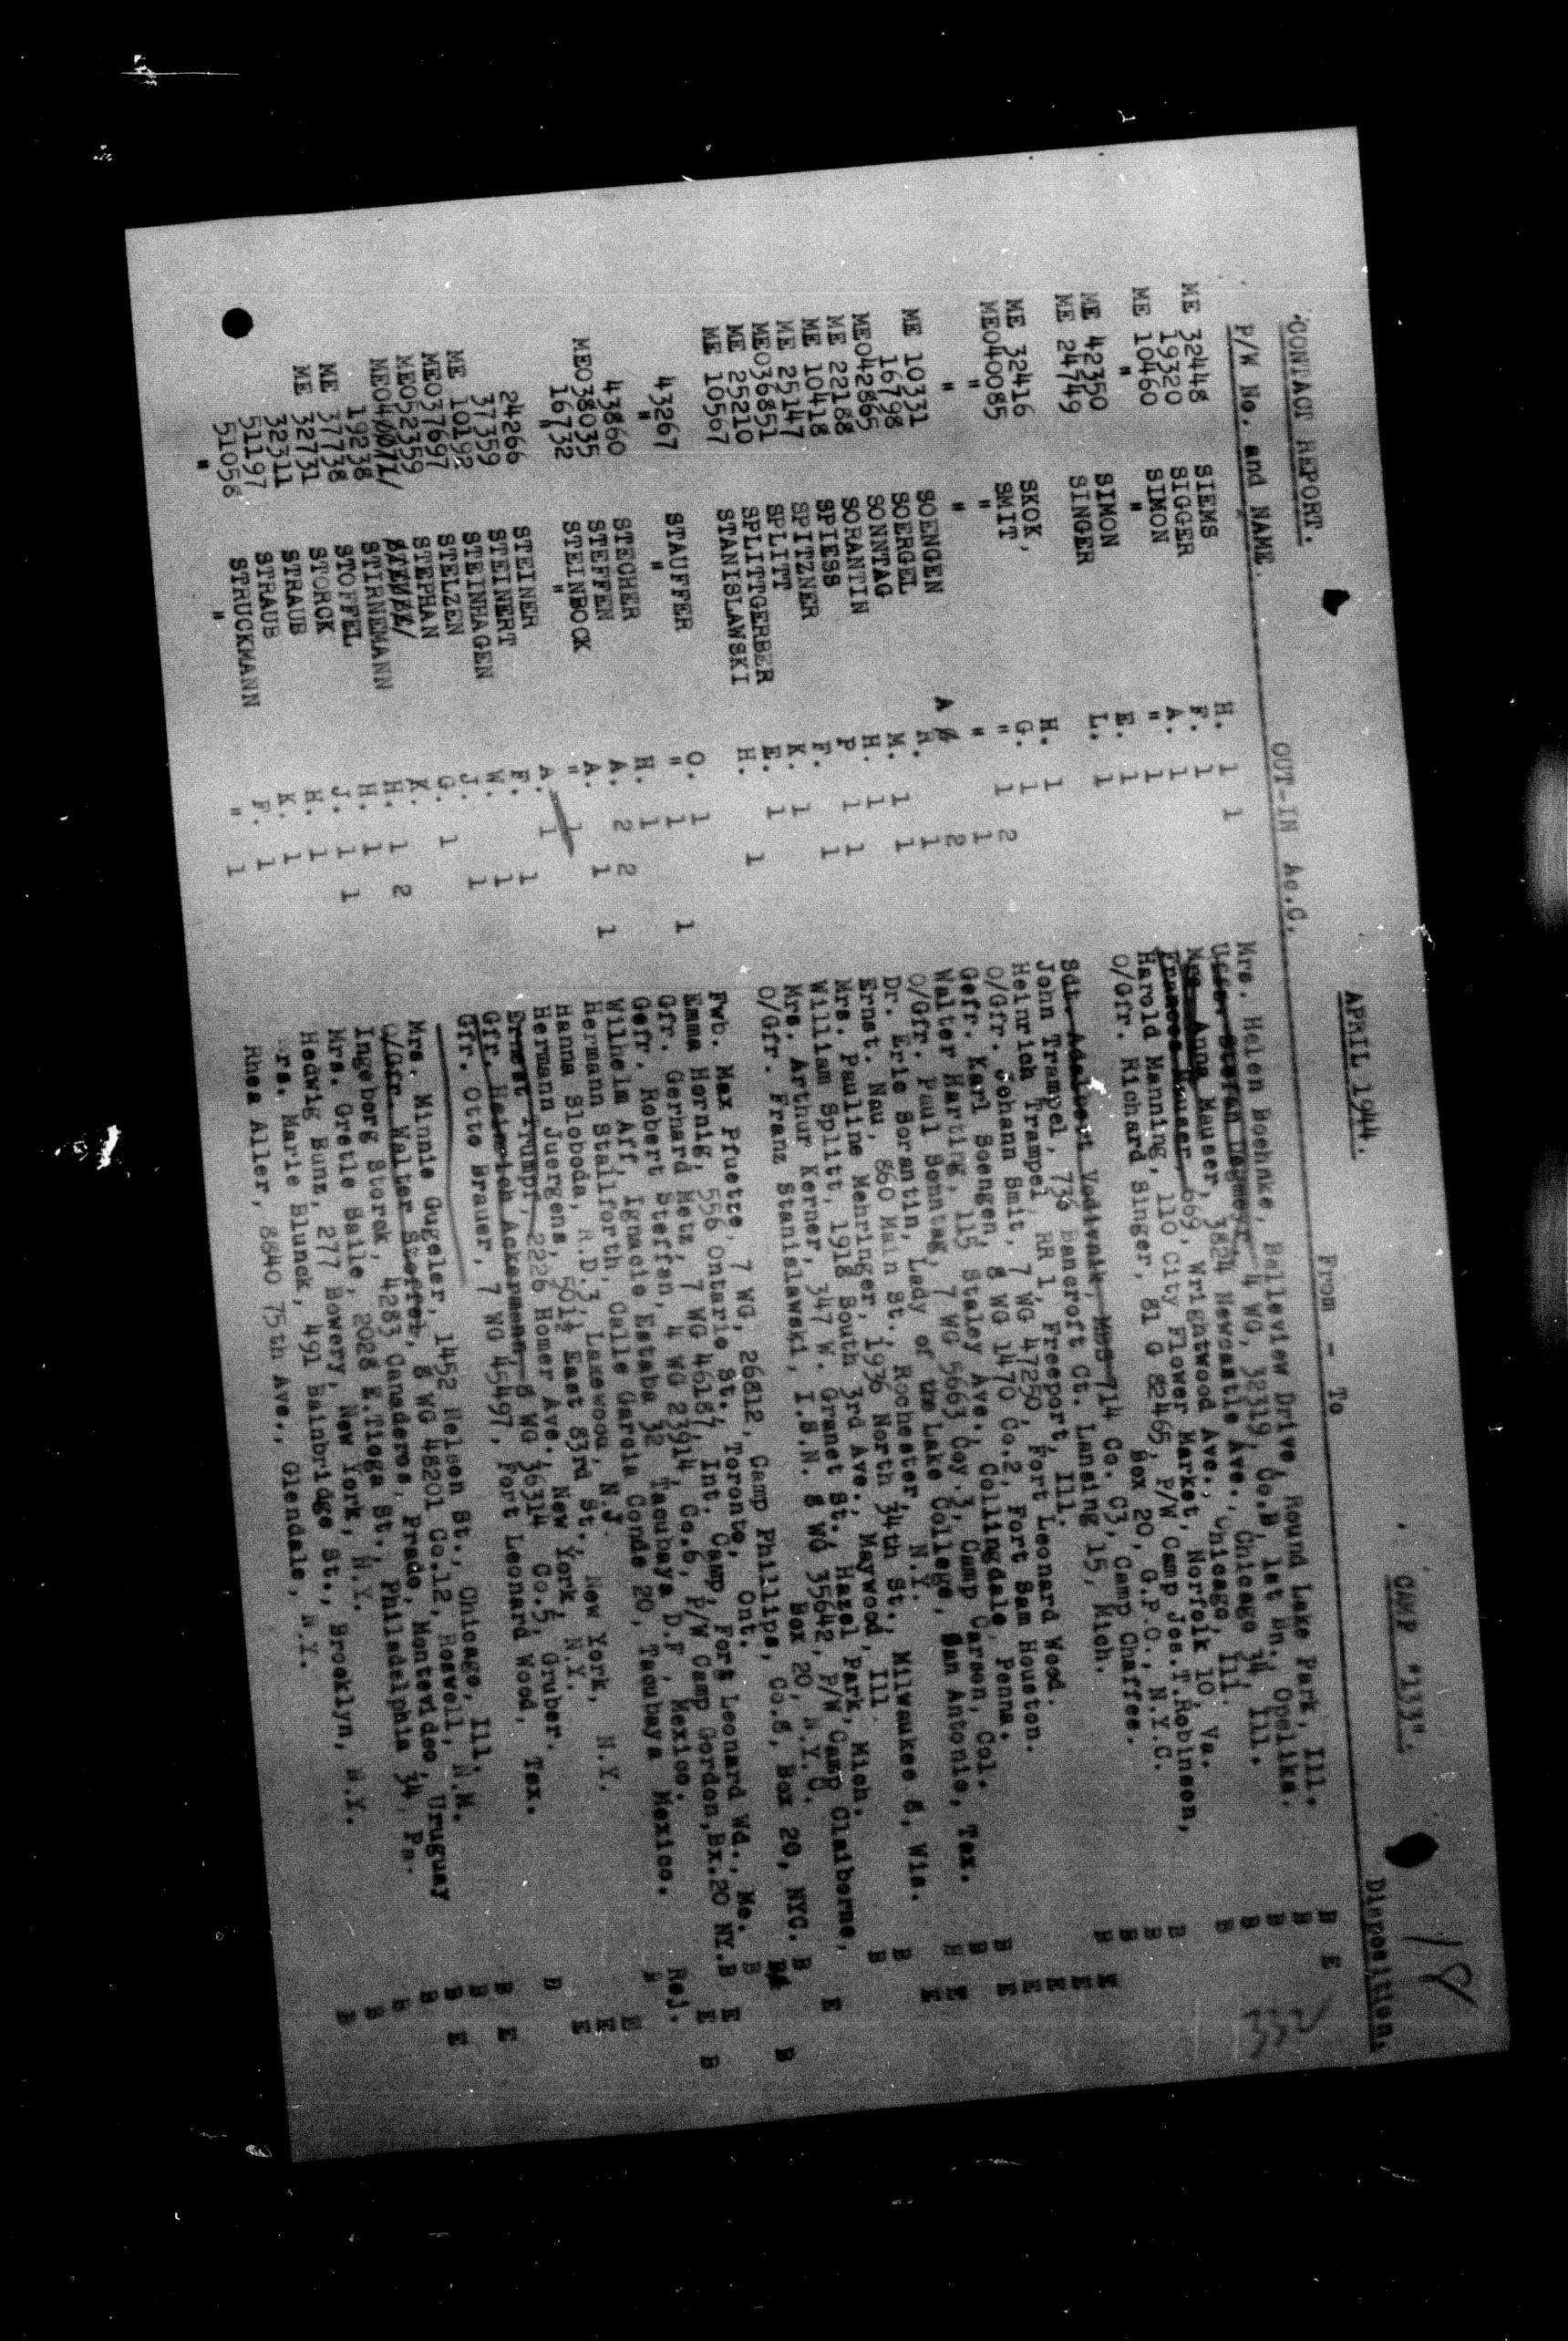 CONTACT REPORT. APRIL 1944. CAMP "133". 18
P/W No. and NAME. OUT-IN Ac.C. From - To Disposition.
332
ME 32448 SIEMS H. 1 1 Mrs. Helen Boehnke, Belleview Drive, Round Lake Park, Ill. B E
19320 SIGGER F. 1 Uffz. Stefan Degmeyr, 4 WG, 32319, Co.B, 1st Bn. Opelika. B
ME 10460 SIMON A. 1 Mrs. Anna Mauser, 3824 Newcastle Ave., Chicago 34, Ill. B
" " " 1 Frances Mauser, 669 Wrightwood Ave., Chicago, Ill. B
ME 42350 SIMON E. 1 Harold Manning, 110 City Flower Market, Norfolk 10, Va. B
ME 24749 SINGER L. 1 O/Gfr. Richard Singer, 81 G 82465, P/W Camp Jos.T.Robinson,
Box 20, G.P.O., N.Y.C. B
ME 32416 SKOK, H. 1 Sdt. Adelbert Vodivnik, MDS 714 Co. C3, Camp Chaffee. B
ME040085 SMIT G. 1 John Trampel, 736 Bancroft Ct. Lansing 15, Mich. B E
" " " 1 2 Heinrich Trampel, RR 1, Freeport, Ill. E
" " " 1 O/Gfr. Johann Smit, 7 WG 47250, Fort Leonard Wood. E
ME 10331 SOENGEN A 2 Gefr. Karl Soengen, 8 WG 1470 Co.2, Fort Sam Houston. E
16798 SOERGEL H. 1 Walter Harting, 115 Staley Ave., Collingdale, Penna. B E
ME042865 SONNTAG M. 1 1 O/Gfr. Paul Sonntag, 7 WG 5663 Coy.3, Camp Carson, Col. B
ME 22188 SORANTIN H. 1 Dr. Eric Sorantin, Lady of the Lake College, San Antonio, Tex. E
ME 10418 SPIESS P 1 1 Ernst. Nau, 860 Main St., Rochester, N.Y. E
ME 25147 SPITZNER F. 1 Mrs. Pauline Mehringer, 1936 North 34th St., Milwaukee 8, Wis. B
ME036851 SPLITT K. 1 William Splitt, 1918 South 3rd Ave., Maywood, Ill. B
ME 25210 SPLITTGERBER E. 1 Mrs. Arthur Kerner, 347 W. Granet St., Hazel Park, Mich.
ME 10567 STANISLAWSKI H. 1 O/Gfr. Franz Stanislawski, I.S.N. 8 WG 35642, P/W Camp Claiborne,
Box 20, N.Y.C. E
43267 STAUFFER O. 1 Fwb. Max Pfuetze, 7 WG, 26812, Camp Phillips, Co.8, Box 20, NYC. B
" " " 1 1 Emma Hornig, 556 Ontario St., Toronto, Ont. B
43860 STECHER H. 1 Gfr. Gerhard Metz, 7 WG 46187, Int. Camp, Fort Leonard Wd., Mo. B
ME038035 STEFFEN A. 2 2 Gefr. Robert Steffen, 4 WG 23914, Co.6, P/W Camp Gordon,Bx.20 NY. B E
16732 STEINBOCK A. 1 1 Wilhelm Aff, Ignacio Estaba 32 Tacubaya D.F , Mexico. Rej.
" " " 1 Hermann Stallforth, Calle Garcia Conde 20, Tacubaya Mexico. "
24266 STEINER A. 1 Hanna Sloboda, R.D.3, Lakewood, N.J. E
37359 STEINERT F. 1 Hermann Juergens, 501½ East 83rd St., New York, N.Y. E
ME 10192 STEINHAGEN W. 1 Ernst Trumpf, 2226 Homer Ave., New York, N.Y. E
ME037697 STELZEN J. 1 Gfr. Heinrich Ackermann 8 WG 36314 Co.5, Gruber. B
ME052359 STEPHAN G. 1 Gfr. Otto Brauer, 7 WG 45497, Fort Leonard Wood, Tex. B E
ME040071/
19238 STIRNEMANN K. Mrs. Minnie Gugeler, 1452 Nelson St., Chicago, Ill. B
ME 37738 STOFFEL H. 1 2 O/Gfr. Walter Stoffel, 8 WG 48201 Co.12, Roswell, N.M. B E
ME 32731 STORCK H. 1 Ingeborg Storck, 4283 Canaderos, Prado, Montevideo, Uruguay B
32311 STRAUB J. 1 1 Mrs. Gretle Baile, 2028 E.Tioga St., Philadelphia 34, Pa. B
51197 STRAUB H. 1 Hedwig Bunz, 277 Bowery, New York, N.Y. B
51058 STRUCKMANN F. 1 Mrs. Marie Blunck, 491 Bainbridge St., Brooklyn, N.Y. B
" " " 1 Rhea Aller, 8840 75th Ave., Glendale, N.Y.